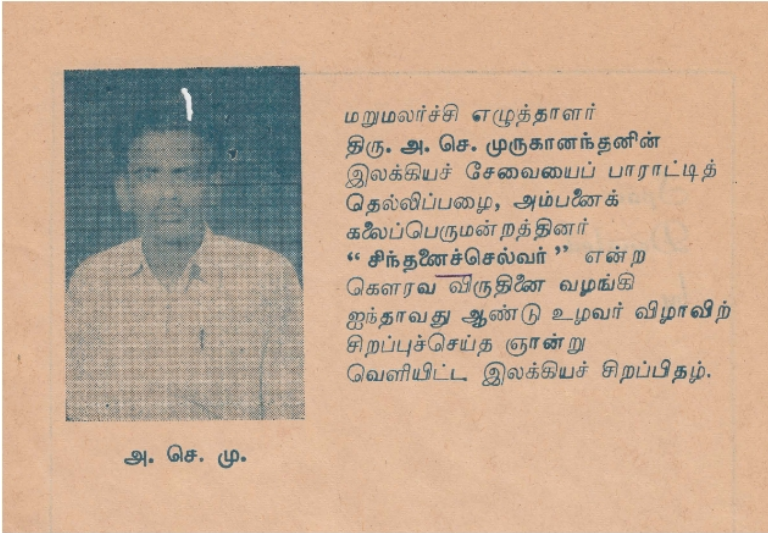 மறுமலர்ச்சி எழுத்தாளர்
திரு. அ. செ. முருகானந்தனின்
இலக்கியச் சேவையைப் பாராட்டித்
தெல்லிப்பழை, அம்பனைக்
கலைப்பெருமன்றத்தினர்
“ சிந்தனைச்செல்வர் ” என்ற
கௌரவ விருதினை வழங்கி
ஐந்தாவது ஆண்டு உழவர் விழாவிற்
சிறப்புச்செய்த ஞான்று
வெளியிட்ட இலக்கியச் சிறப்பிதழ்.
அ. செ. மு.